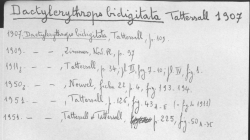 Dactylerythrops bidigitata Tattersall 1907
1907. Dactylerythrops bidigitata Tattersall, p. 109.
1909. — — Zimmer, Nord. Pl., p. 97
1911. — — Tattersall, p. 34, pl. fig 7-10; pl. fig. 8.
1950. — — Nouvel, fiche 21, p. 4, fig 193. 194.
1951. — — Tattersall, p. 126, fig. 43 a-E (= fig. 1911)
1951. — — Tattersall & Tattersall p. 225, fig. 50 A-E